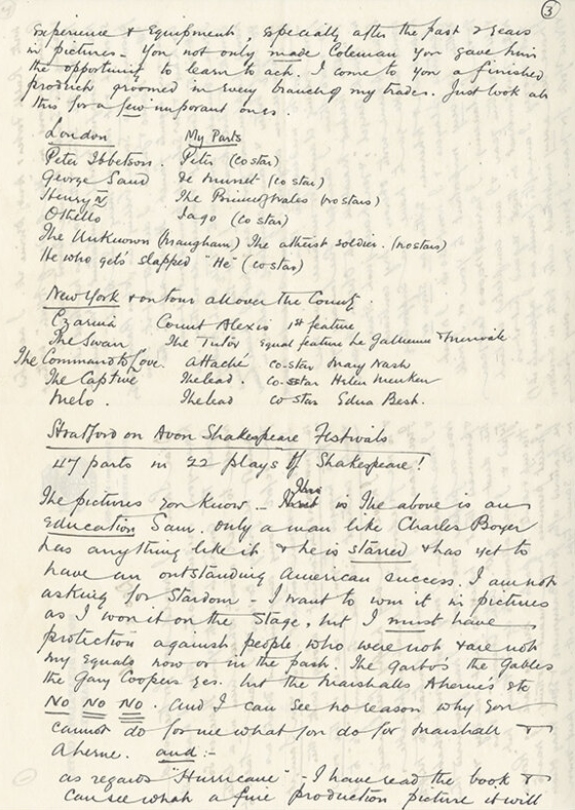 3
experience & Equipment, especially after the past 2 years
in pictures. You not only made Coleman you gave him
the opportunity to learn to act. I come to you a finished
product groomed in every branch of my trade. Just look at
this for a few important ones.
London My Parts
Peter Ibbetson. Peter (co star)
George Sand de Musset (co star)
Henry IV The Prince of Wales (no stars)
Othello Iago (co star)
The Unknown (Maugham) The atheist soldier. (no stars)
He who gets slapped "He" (co star)
New York & on tour all over the County.
Czarina Count Alexis 1st feature
The Swan The Tutor Equal feature Le Gallienne & Merivale
The Command to Love. Attaché co-star Mary Nash
The Captive The lead. co-star Helen Menken
Melo. The lead co star Edna Best.
Stratford on Avon Shakespeare Festivals
47 parts in 22 plays of Shakespeare!
The pictures you know -- This in The above is an
Education Sam. only a man like Charles Boyer
has anything like it & he is starred & has yet to
have an outstanding American success. I am not
asking for Stardom - I want to win it in pictures
as I won it on the Stage, but I must have
protection against people who were not & are not
my Equals now or in the past. The Garbos the Gables
the Gary Coopers yes. but the Marshalls Aherne's etc
No No No. and I can see no reason why you
cannot do for me what you do for Marshall &
Aherne. and:-
as regards "Hurricane" - I have read the book &
can see what a fine production picture it will